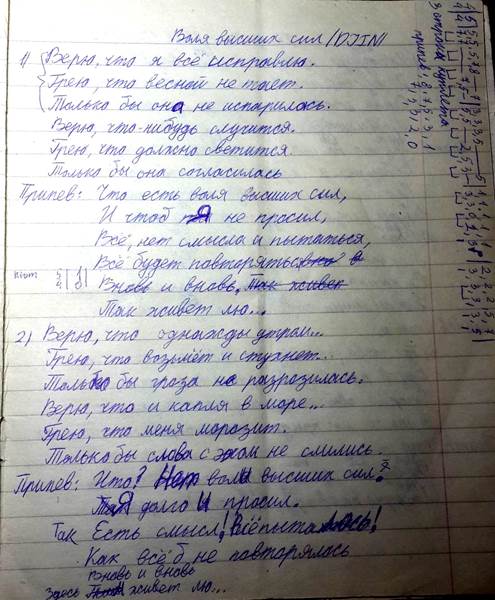 Воля высших сил /DJIN/
1) Верю, что я всё исправлю.
Грею, что весной не тает.
Только бы она не испарилась.
Верю, что-нибудь случится.
Грею, что должно светится
Только бы она согласилась
Припев: Что есть воля высших сил,
И чтоб я не просил,
Всё, нет смысла и пытаться,
Всё будет повторяться
Вновь и вновь, Так живет
Так живет лю...
2) Верю, что однажды утром...
Грею, что возьмёт и стухнет.
Только бы гроза не разрозилась.
Верю, что и капля в море...
Грею, что меня морозит.
Только бы слова с эхом не слились.
Припев: Что? Нет воли высших сил?
Я долго и просил.
Так Есть смысл! Всё пыталось!
Как всё б не повторялось
вновь и вновь
Здесь живет лю...
3 строка куплета
припев: